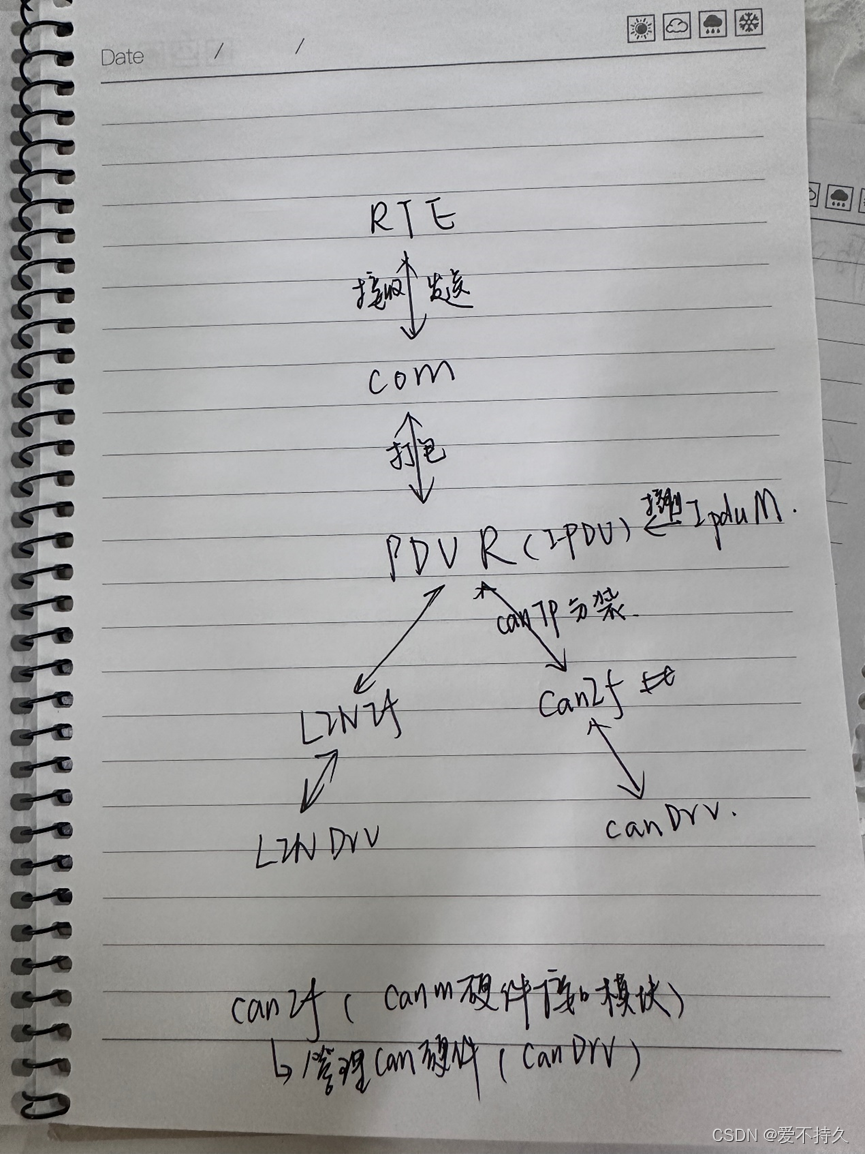 Date / /
RTE
接收 发送
com
打包
PDUR(IPDU) ← IpduM.
canTP 分装.
LINIf CanIf
LINDrv canDrv.
canIf ( Canm硬件接口模块)
↳ 管理Can硬件 ( CanDrv )
CSDN @爱不持久